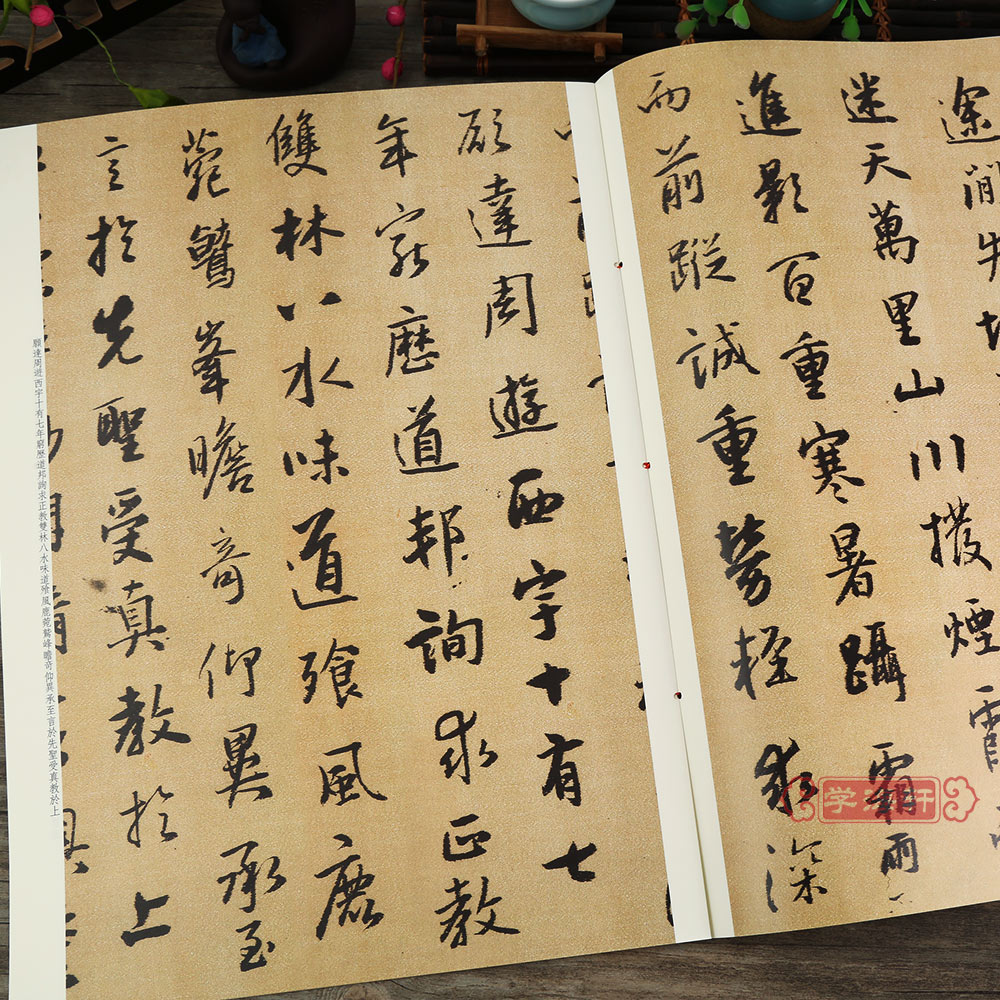 塗間失地
迷天萬里山川撥煙霞
進影百重寒暑躡霜雨
而前蹤誠重勞輕求深
願達周遊西宇十有七
年窮歷道邦詢求正教
雙林八水味道飱風鹿
菀鷲峯瞻奇仰異承至
言於先聖受真教於上
願達周遊西宇十有七年窮歷道邦詢求正教雙林八水味道飱風鹿菀鷲峰瞻奇仰異承至言於先聖受真教於上
学 轩